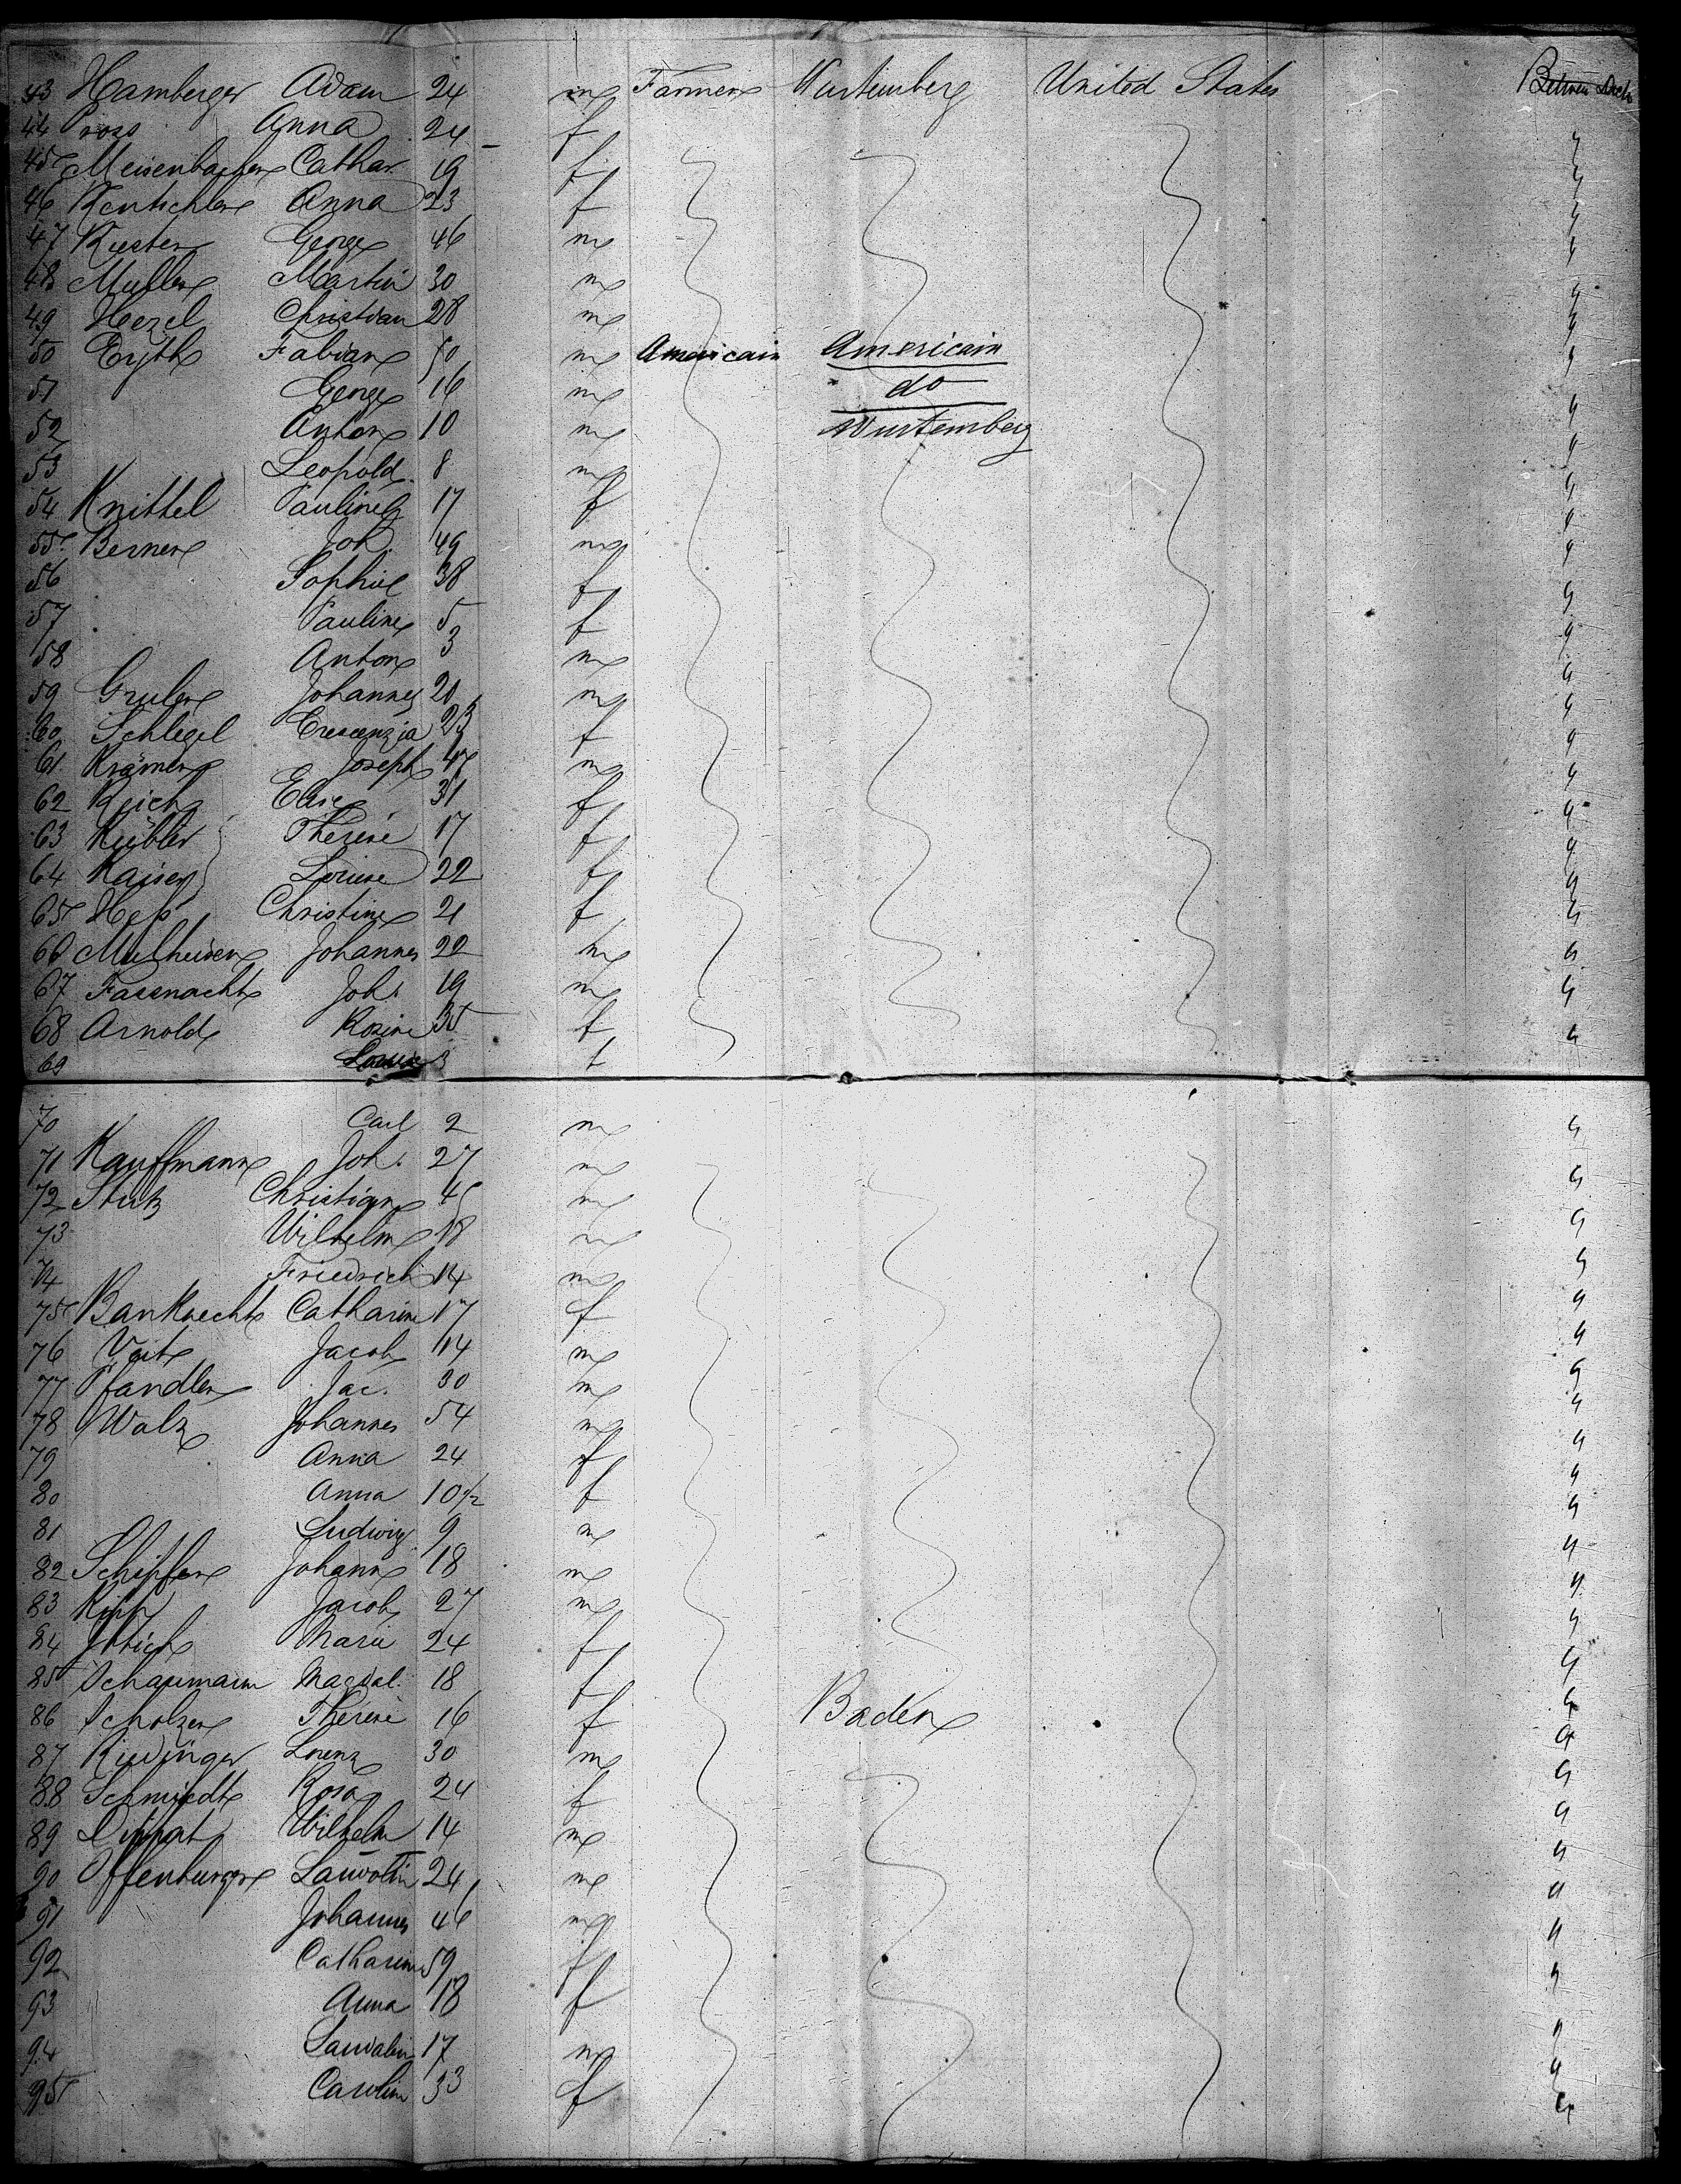 43 Hamberger Adam 24 m Farmer Wurtemberg United States Between Decks
44 Pross Anna 24 f "
45 Meisenbacher Cathar. 19 f "
46 Rentschler Anna 23 f "
47 Kuster George 46 m "
48 Muller Martin 30 m "
49 Hezel Christian 28 m "
50 Eyth Fabian 50 m Americain Americain "
51 George 16 m do "
52 Anton 10 m Wurtemberg "
53 Leopold 8 m "
54 Knittel Pauline 17 f "
55 Berner Joh. 49 m "
56 Sophie 38 f "
57 Pauline 5 f "
58 Anton 3 m "
59 Gruler Johannes 20 m "
60 Schlegel Crescenzia 23 f "
61 Krämer Joseph 47 m "
62 Reich Elise 31 f "
63 Kübler Therese 17 f "
64 Kaiser Louise 22 f "
65 Heß Christine 21 f "
66 Mulheisen Johannes 22 m "
67 Fassnacht Joh. 19 m "
68 Arnold Rosine 35 f "
69 Louise 3 f
70 Carl 2 m "
71 Kauffmann Joh. 27 m "
72 Stutz Christian 45 m "
73 Wilhelm 18 m "
74 Friedrich 14 m "
75 Bauknecht Catharine 17 f "
76 Veit Jacob 14 m "
77 Pfandler Jac. 30 m "
78 Walz Johannes 54 m "
79 Anna 24 f "
80 Anna 10½ f "
81 Ludwig 9 m "
82 Johann 18 m "
83 Jacob 27 m "
84 Marie 24 f "
85 Schaumann Magdal. 18 f "
86 Scholzer Therese 16 f Baden "
87 Lorenz 30 m "
88 Schmiedt Rosa 24 f "
89 Wilhelm 14 m "
90 Offenburger 24 m "
91 Johannes 46 m "
92 Catharine 59 f "
93 Anna 18 f
94 17 m "
95 Carolin 33 f "